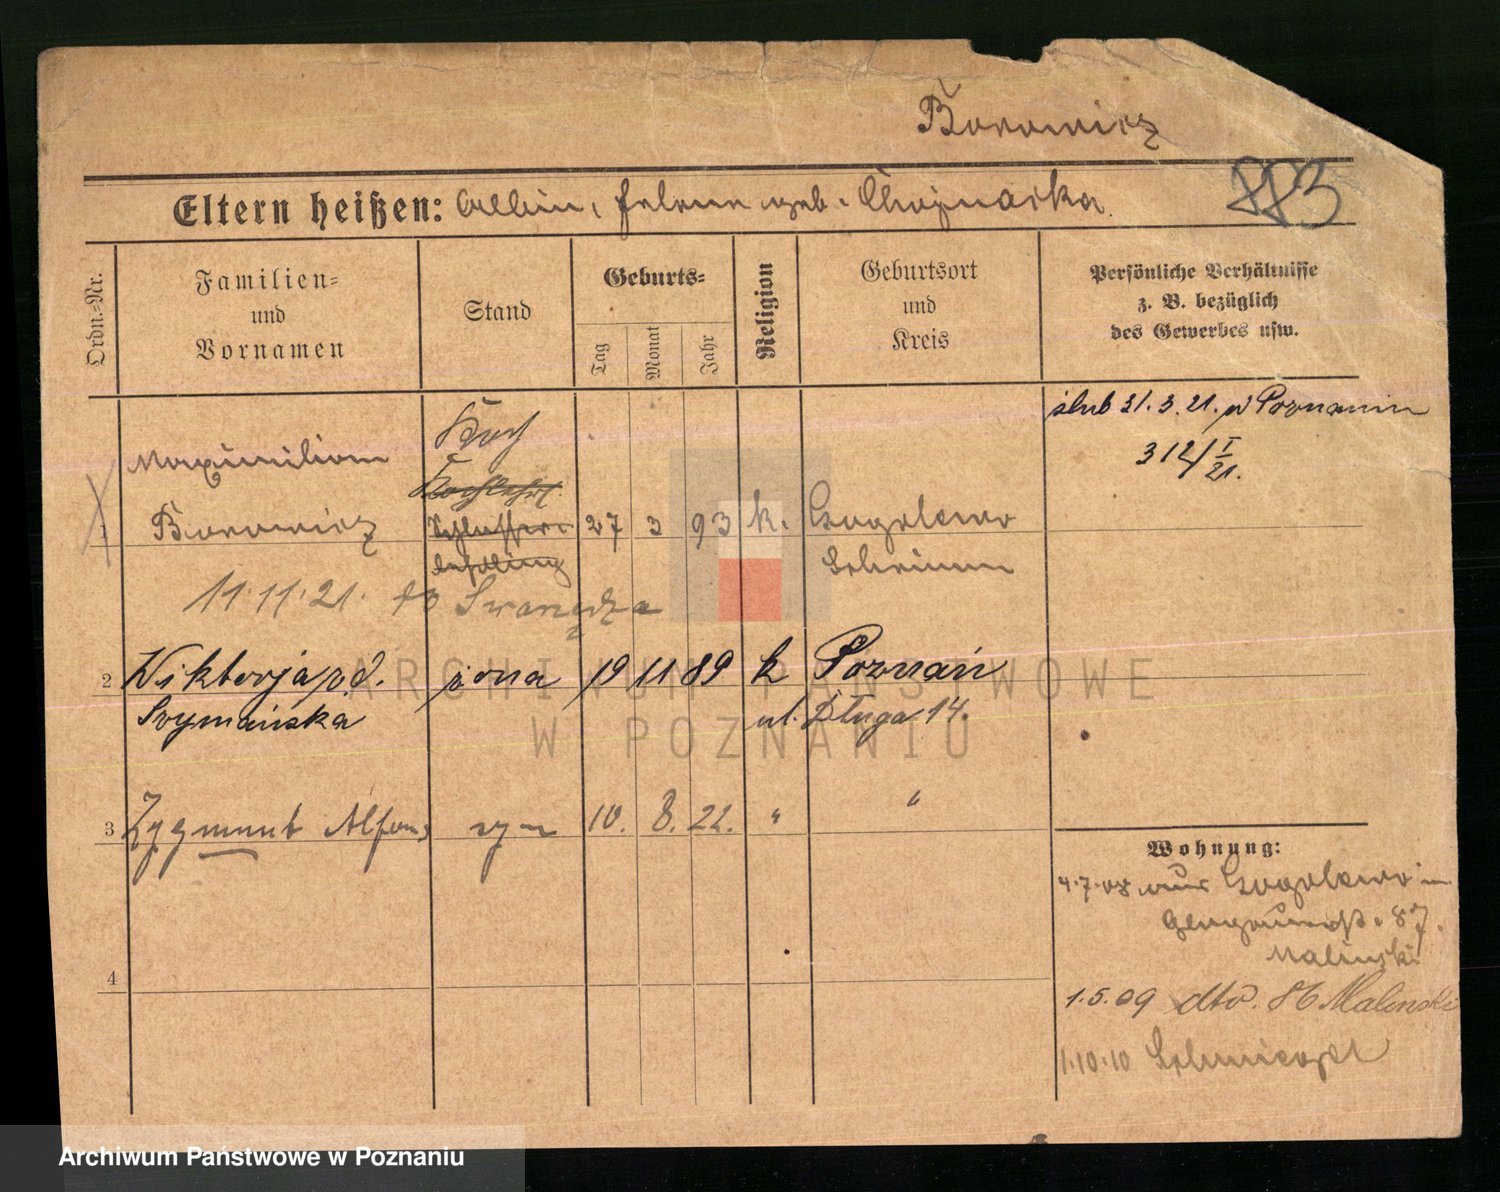 Borowicz
883
Eltern heißen: Albin, Helene geb. Chojnacka.
Ordn.-Nr.
Familien=
und
Vornamen
Stand
Geburts=
Tag
Monat
Jahr
Religion
Geburtsort
und
Kreis
Persönliche Verhältnisse
z. B. bezüglich
des Gewerbes usw.
ślub 31.3.21. w Poznaniu
312/I
21.
Maximilian
Koch
1 Borowicz
Kochlehrl.
Schlosser
lehrling
27 3 93 k. Gogolewo
Schrimm
11.11.21. do Swarzędza
2 Wiktorja pd. żona 19 11 89 k Poznań
Szymańska ul. Długa 14.
3 Zygmunt Alfons syn 10. 8. 22. " "
4
Wohnung:
4.7.08 aus Gogolewo in
87.
Malinski
1.5.09 dto. 86 Malinski
1.10.10
ARCHIWUM PAŃSTWOWE
W POZNANIU
Archiwum Państwowe w Poznaniu